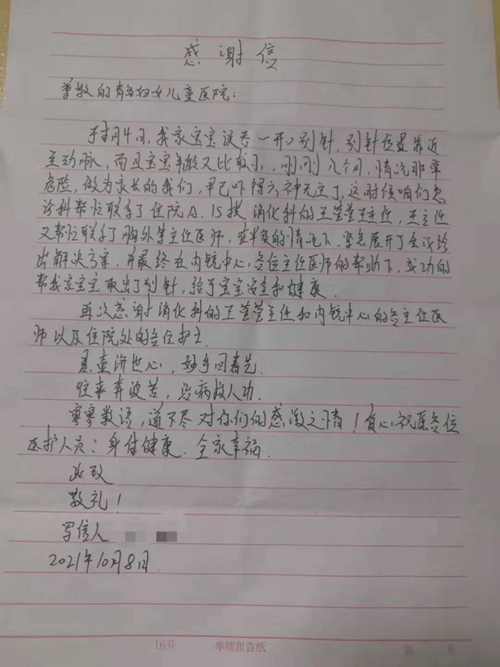 感谢信
尊敬的青岛妇女儿童医院:
于本月4日,我家宝宝误吞一开口别针,别针位置靠近
主动脉,而且宝宝年龄又比较小,刚刚几个月,情况非常
危险,做为家长的我们,早已吓得六神无主了,这时候咱们急
诊科帮忙联系了住院及15楼消化科的王莹莹主任,王主任
又帮忙联系了胸外等主任医师,在半夜的情况下,紧急展开了会议给
出解决方案.并最终在内镜中心,各位主任医师的帮助下,成功的
帮我宝宝取出了别针,给了宝宝安全和健康.
再次感谢消化科的王莹莹主任和内镜中心的各主任医
师以及住院处的各位护士.
悬壶济世心,妙手回春先.
往来奔波苦,治病救人功.
寥寥数语,道不尽对你们的感激之情!衷心祝愿各位
医护人员:身体健康.全家幸福.
此致
敬礼!
写信人
2021年10月8日.
16开 单线报告纸 第 页